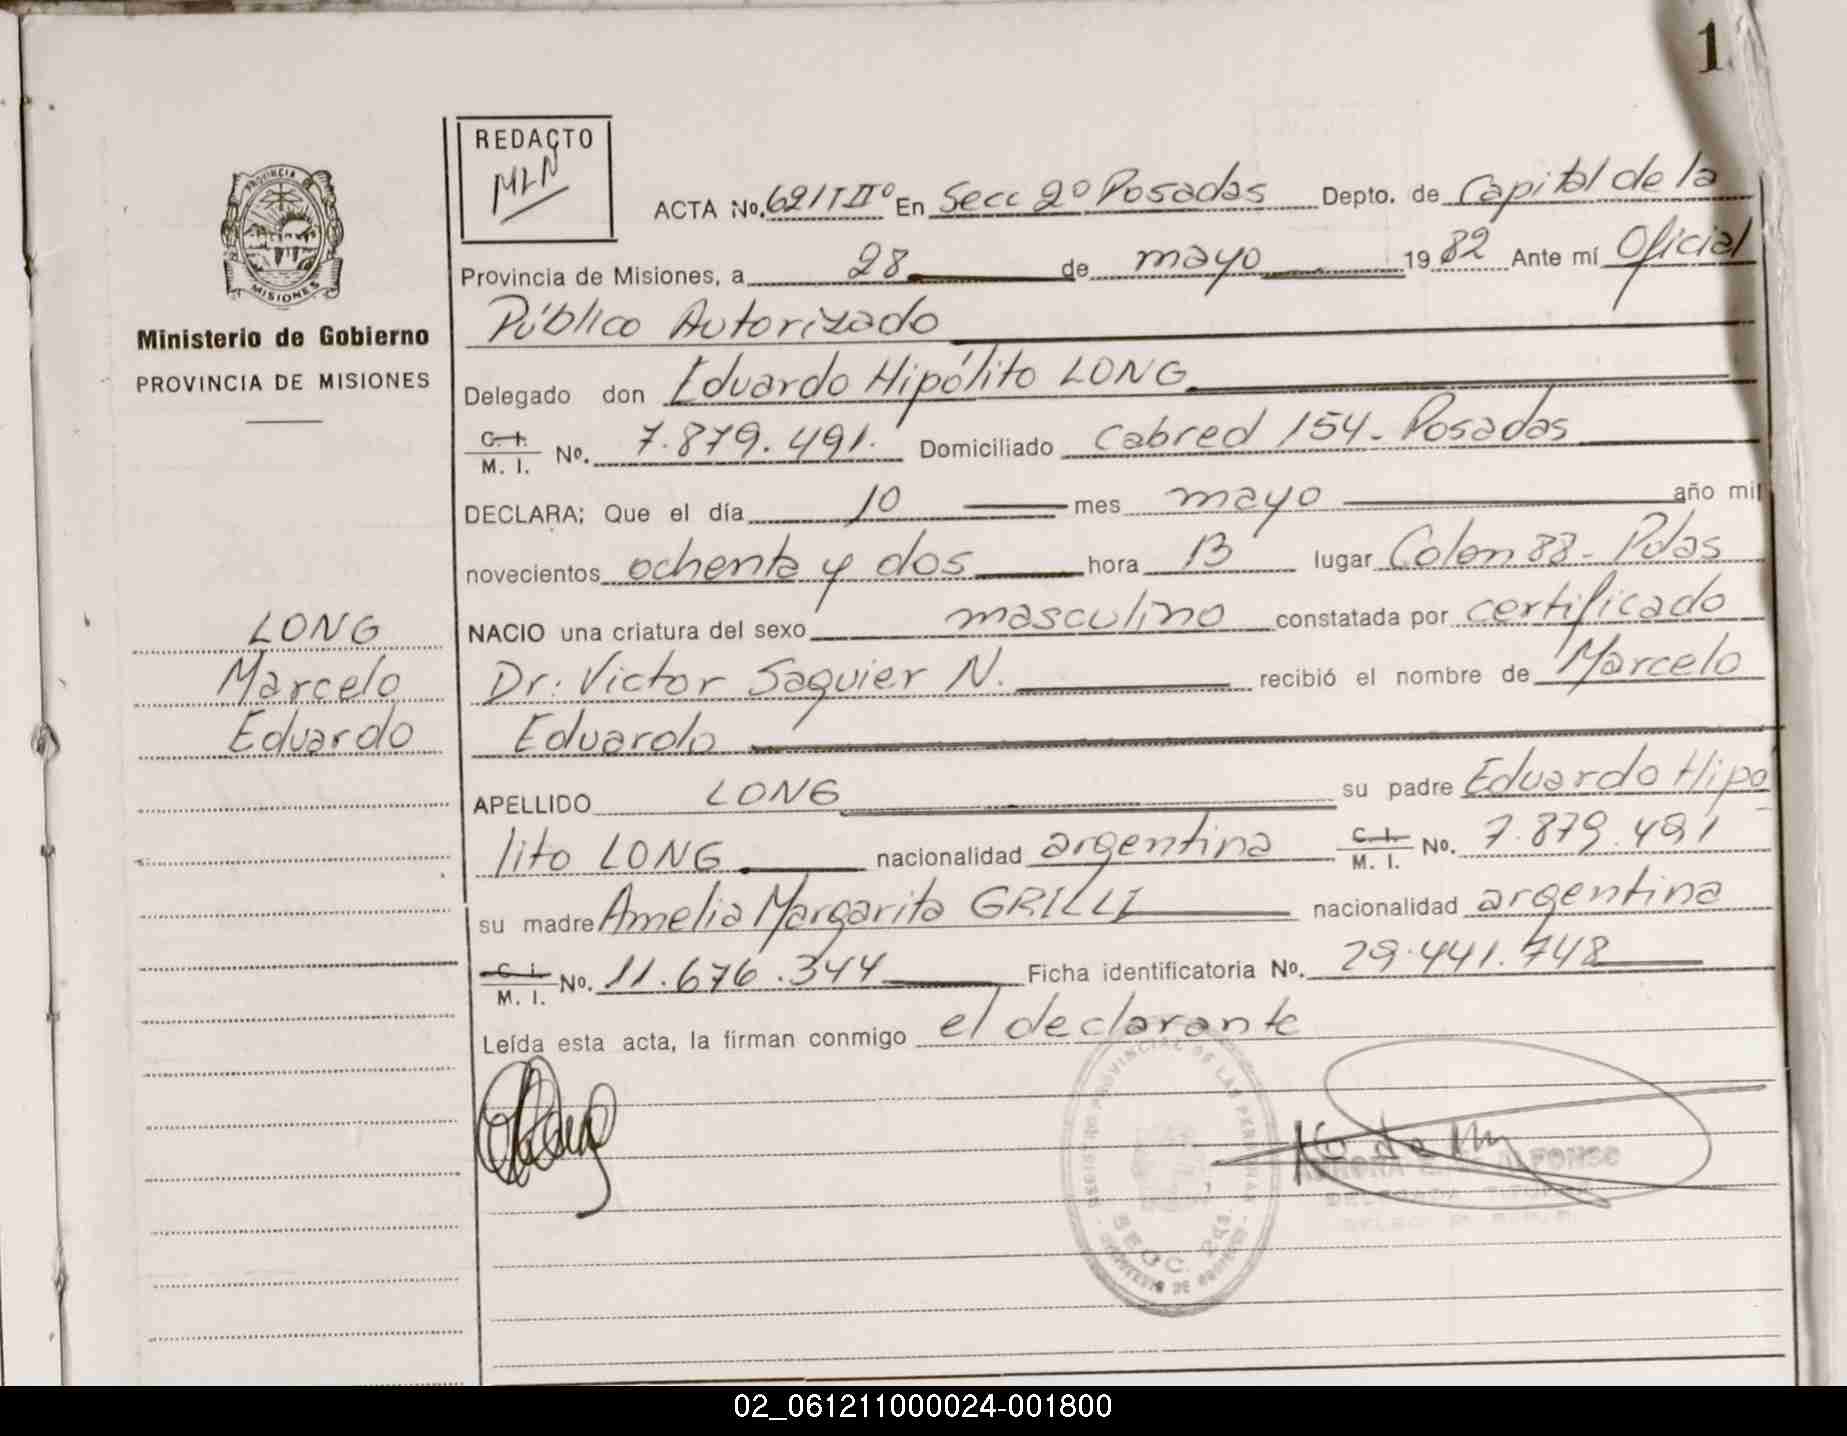 1
REDACTO
MLN
ACTA No. 621 T IIº En Secc 2º Posadas Depto. de Capital de la
Provincia de Misiones, a 28 de mayo 1982 Ante mí Oficial
Público Autorizado
Delegado don Eduardo Hipólito LONG
C. I. / M. I. Nº. 7.879.491. Domiciliado Cabred 154 - Posadas
DECLARA; Que el día 10 mes mayo año mil
novecientos ochenta y dos hora 13 lugar Colon 88 - Pdas
NACIO una criatura del sexo masculino constatada por certificado
Dr. Victor Saguier N. recibió el nombre de Marcelo
Eduardo
APELLIDO LONG su padre Eduardo Hipo
lito LONG nacionalidad argentina C. I. / M. I. Nº. 7.879.491
su madre Amelia Margarita GRILLI nacionalidad argentina
C. I. / M. I. Nº. 11.676.344 Ficha identificatoria Nº. 29.441.748
Leída esta acta, la firman conmigo el declarante
PROVINCIA
MISIONES
Ministerio de Gobierno
PROVINCIA DE MISIONES
LONG
Marcelo
Eduardo
PROVINCIAL DE LAS PERSONAS
SECC. 2da.
ALFONSO
02_061211000024-001800